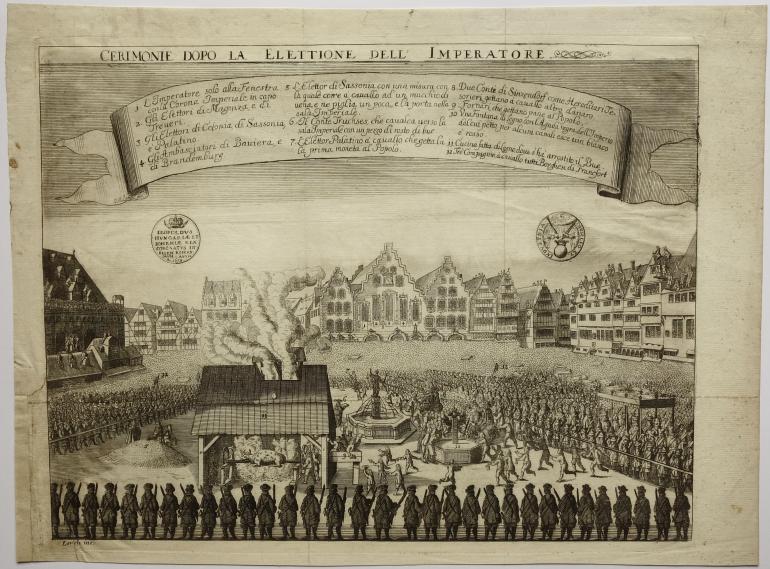 CERIMONIE DOPO LA ELETTIONE DELL' IMPERATORE
1 L'Imperatore solo alla Fenestra
con la Corona Imperiale in capo
2 Gli Elettori di Magonza e di
Treveri
3 Gli Elettori di Colonia, di Sassonia,
e Palatino
4 Gli Ambasciatori di Baviera, e
di Brandemburg
5 L'Elettor di Sassonia con una misura con
la quale corre a cavallo ad un mucchio di
uena, e ne piglia un poco, e la porta nella
sala Imperiale.
6 Il Conte Truchses che cavalca verso la
sala Imperiale con un pezzo di rosto di bue
7 L'Elettor Palatino a cavallo che getta la
la prima moneta al Popolo.
8 Due Conte di Sinzendorf come Hereditarj Te-
sorieri gettano a cavallo altro danaro
9 Fornari che gettano pane al Popolo
10 Una Fontana di legno con l'Aquila
dal cui petto per alcuni canali esce vin bianco
e rosso
11 Cucina fatta di legno dove s'è arrostito il Bue
12 Tre Compagnie a cavallo tutti Borghesi di Francfort
LEOPOLDVS
HUNGARIÆ ET
BOHEMIÆ REX
CORONATUS IN
REGEM ROMAN